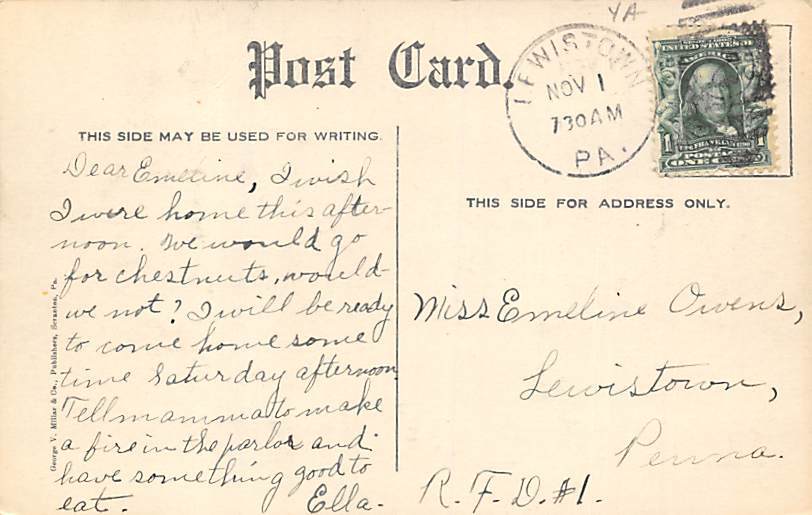 Post Card.
THIS SIDE MAY BE USED FOR WRITING.
Dear Emeline, I wish
I were home this after-
noon. We would go
for chestnuts, would-
we not? I will be ready
to come home some
time Saturday afternoon.
Tell mamma to make
a fire in the parlor and
have something good to
eat. Ella-
George V. Millar & Co., Publishers, Scranton, Pa.
LEWISTOWN
NOV 1
730AM
PA.
UNITED STATES OF
AMERICA
1 FRANKLIN 1
POSTAGE
ONE CENT
THIS SIDE FOR ADDRESS ONLY.
Miss Emeline Owens,
Lewistown,
Penna.
R.F.D. #1.